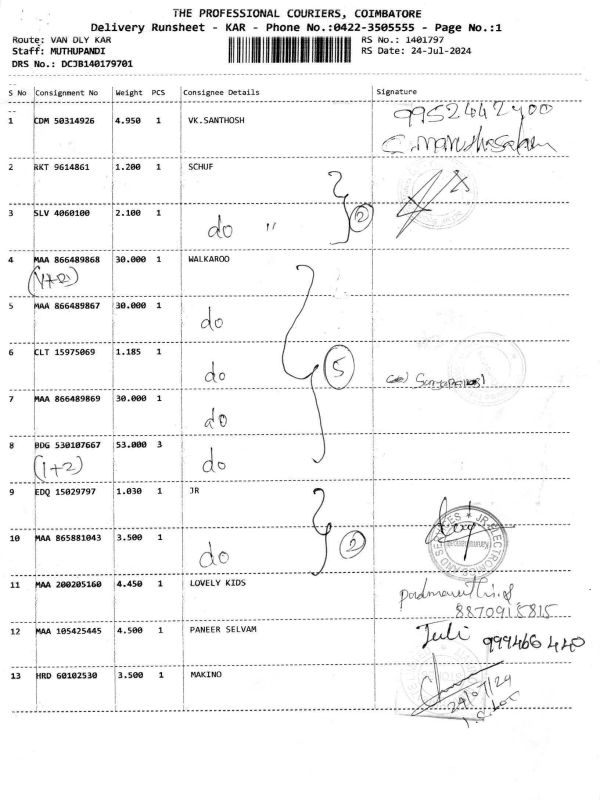 THE PROFESSIONAL COURIERS, COIMBATORE
Delivery Runsheet - KAR - Phone No.:0422-3505555 - Page No.:1
Route: VAN DLY KAR RS No.: 1401797
Staff: MUTHUPANDI RS Date: 24-Jul-2024
DRS No.: DCJB140179701
S No Consignment No Weight PCS Consignee Details Signature
1 CDM 50314926 4.950 1 VK.SANTHOSH
2 RKT 9614861 1.200 1 SCHUF
3 SLV 4060100 2.100 1 do " 2
4 MAA 866489868 30.000 1 WALKAROO
5 MAA 866489867 30.000 1 do
6 CLT 15975069 1.185 1 do 5
7 MAA 866489869 30.000 1 do
8 BDG 530107667 53.000 3 do
(1+2)
9 EDQ 15029797 1.030 1 JR
10 MAA 865881043 3.500 1 do 2
11 MAA 200205160 4.450 1 LOVELY KIDS
8870915815
12 MAA 105425445 4.500 1 PANEER SELVAM
13 HRD 60102530 3.500 1 MAKINO
24/07/24